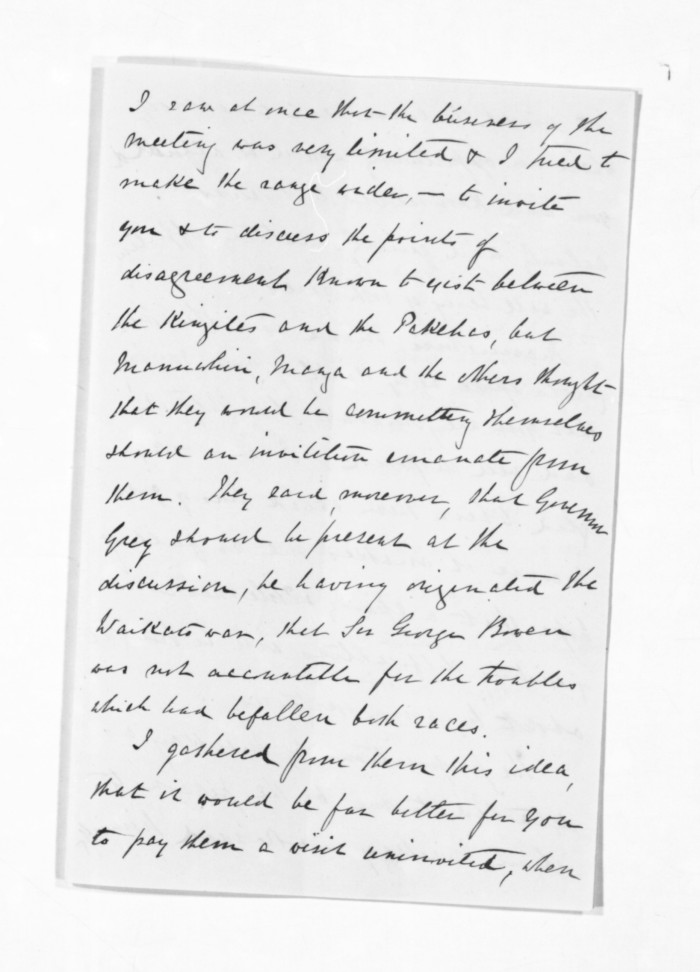 I saw at once that the business of the
meeting was very limited & I tried to
make the range wider, — to invite
you & to discuss the points of
disagreement known to exist between
the Kingites and the Pakehas, but
Manuwhiri, Manga and the others thought
that they would be committing themselves
should an invitation emanate from
them. They said, moreover, that Governor
Grey should be present at the
discussion, he having originated the
Waikato war, that Sir George Bowen
was not accountable for the troubles
which had befallen both races.
I gathered from them this idea,
that it would be far better for you
to pay them a visit uninvited, when